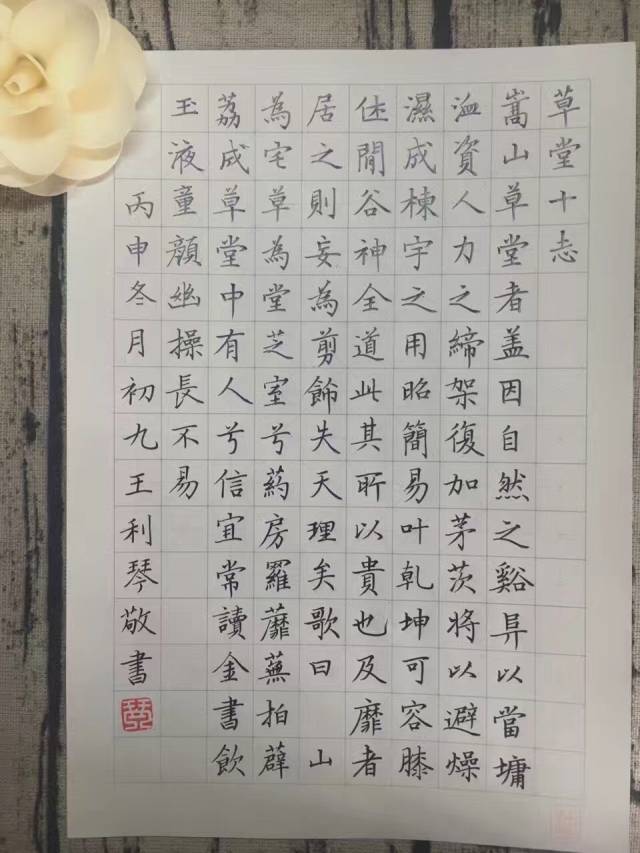 草堂十志
嵩山草堂者盖因自然之谿异以當墉
洫資人力之締架復加茅茨將以避燥
濕成棟宇之用昭簡易叶乾坤可容膝
休閒谷神全道此其所以貴也及靡者
居之則妄為剪飾失天理矣歌曰 山
為宅草為堂芝室兮葯房羅蘼蕪拍薜
荔成草堂中有人兮信宜常讀金書飲
玉液童顏幽操長不易
丙申冬月初九王利琴敬書
琴